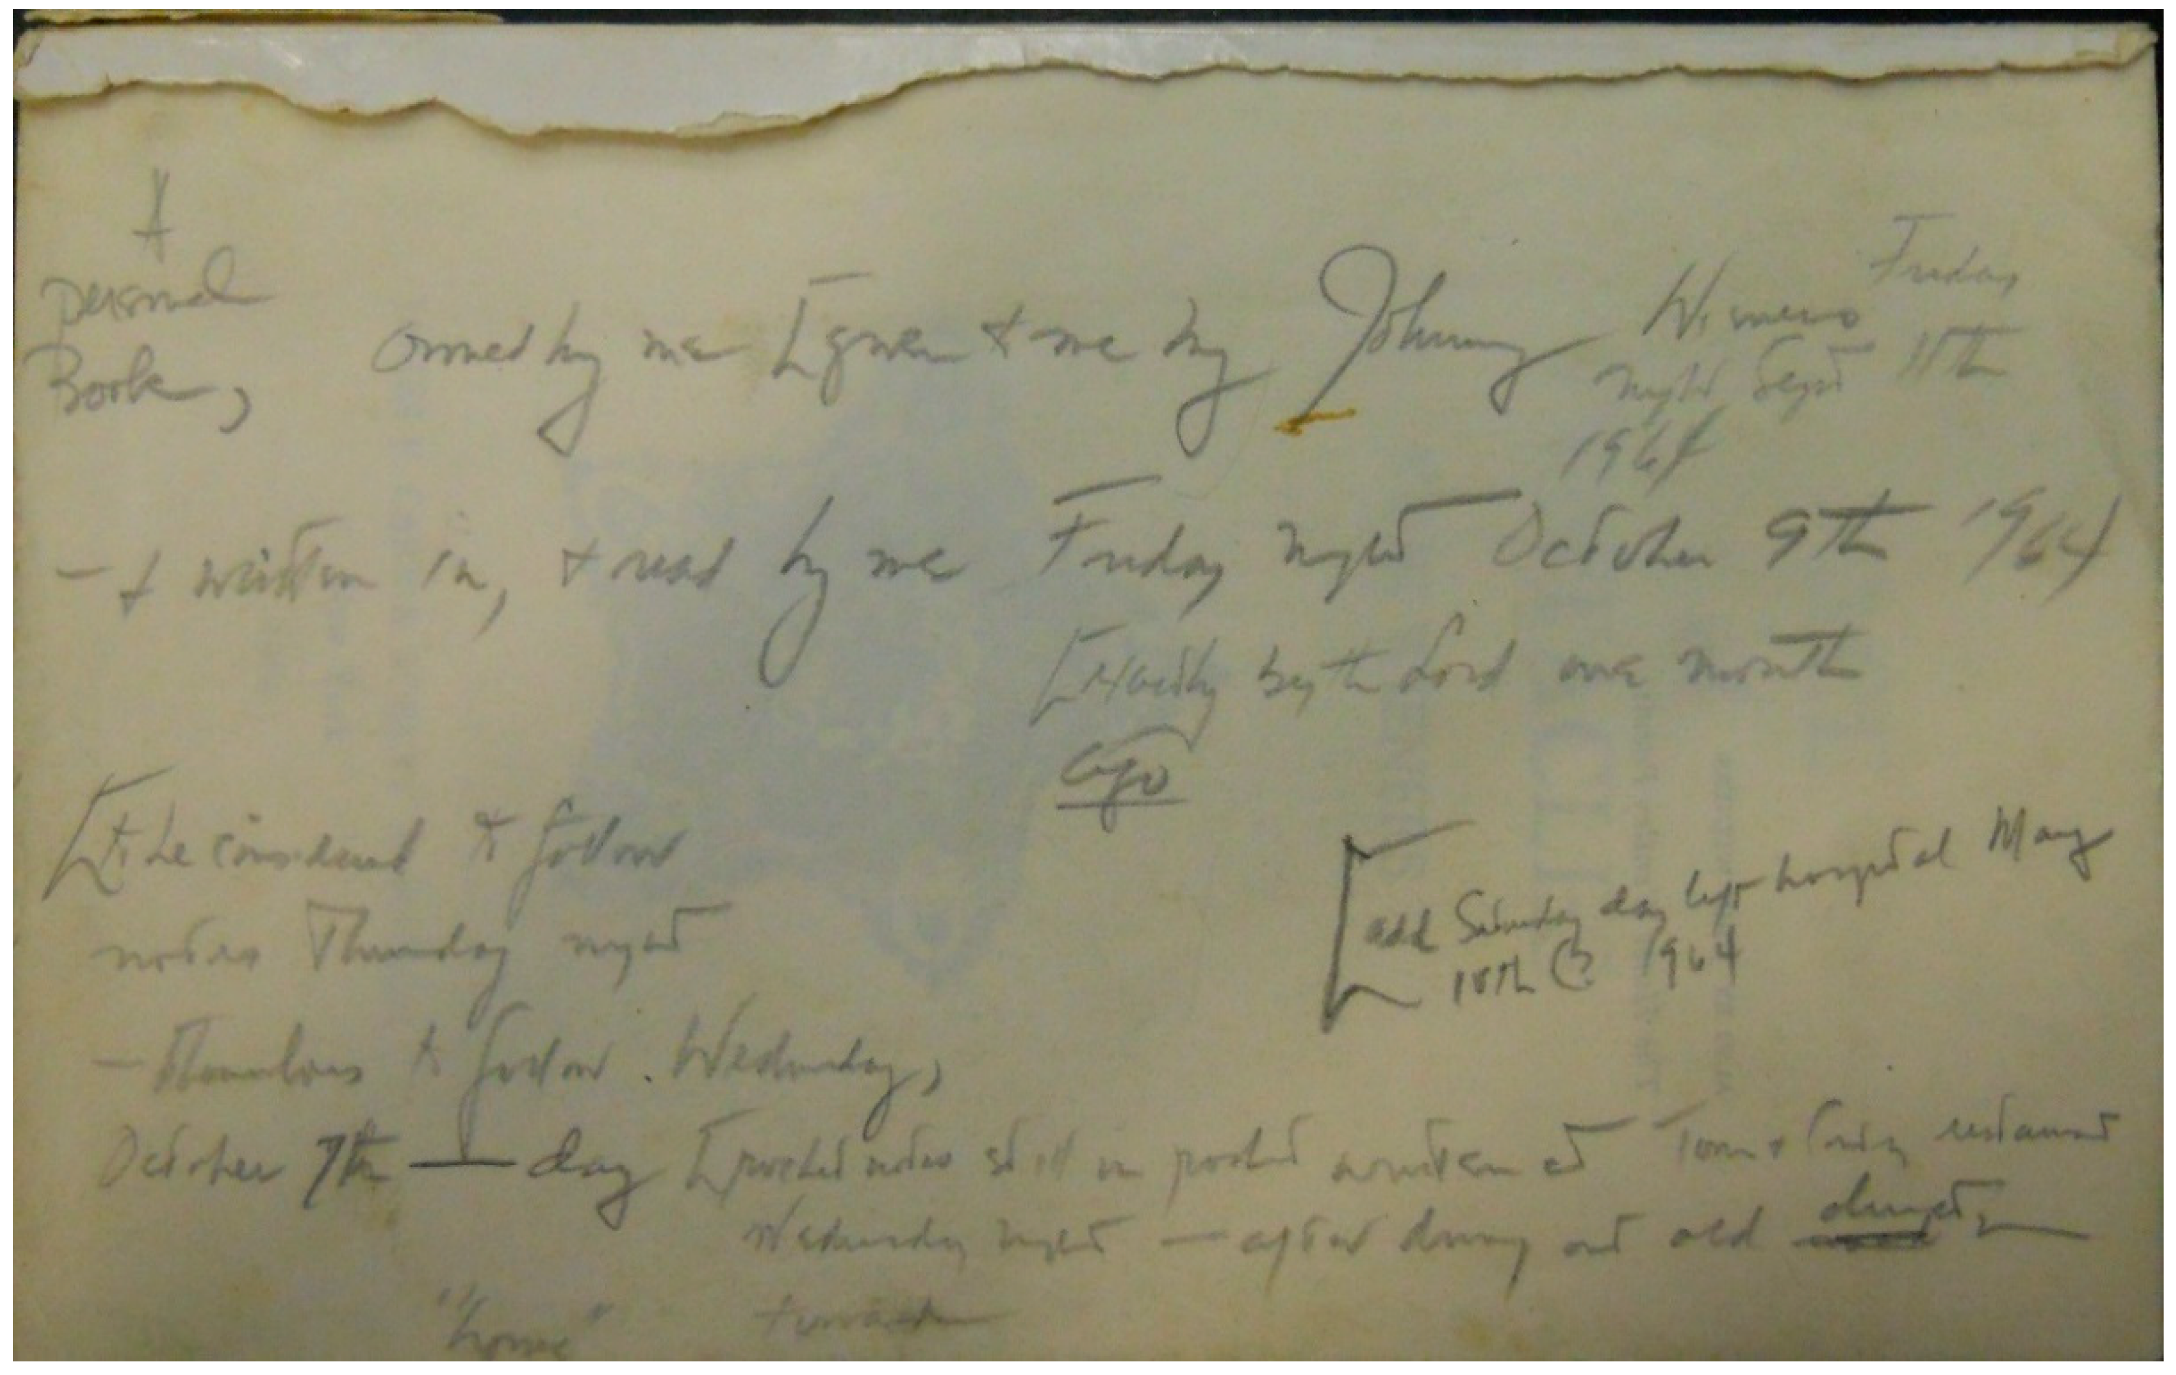 A
personal
Book,
owned by me [given to me by Johnny Wieners Friday
night Sept 11th
1964
- & written in, & read by me Friday night October 9th 1964
[Exactly by the Lord one month
ago
[to be considered to follow
notes Thursday night
- themselves to follow Wednesday,
October 7th — day [pocket notes still in pocket written at Tom & restaurant
Wednesday night — after dining out old
"home"
[add Saturday day left hospital May
1964